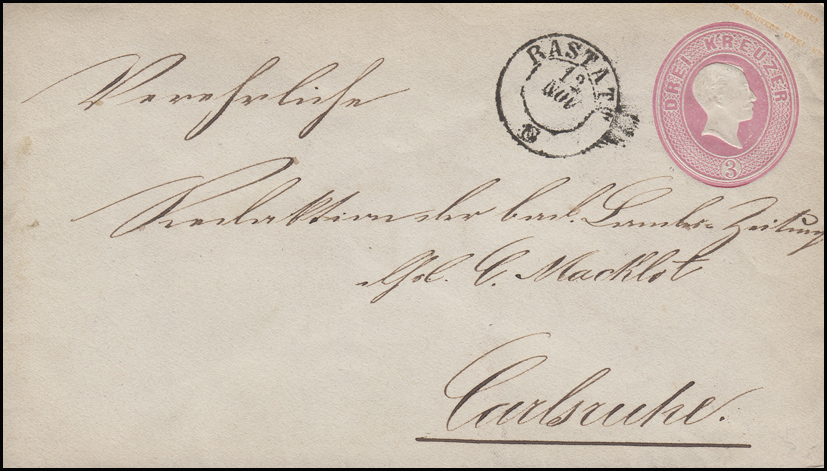 RASTATT
12
NOV
DREI KREUZER
3
Verehrliche
Redaktion der bad. Landes-Zeitung
C. Macklot
Carlsruhe.